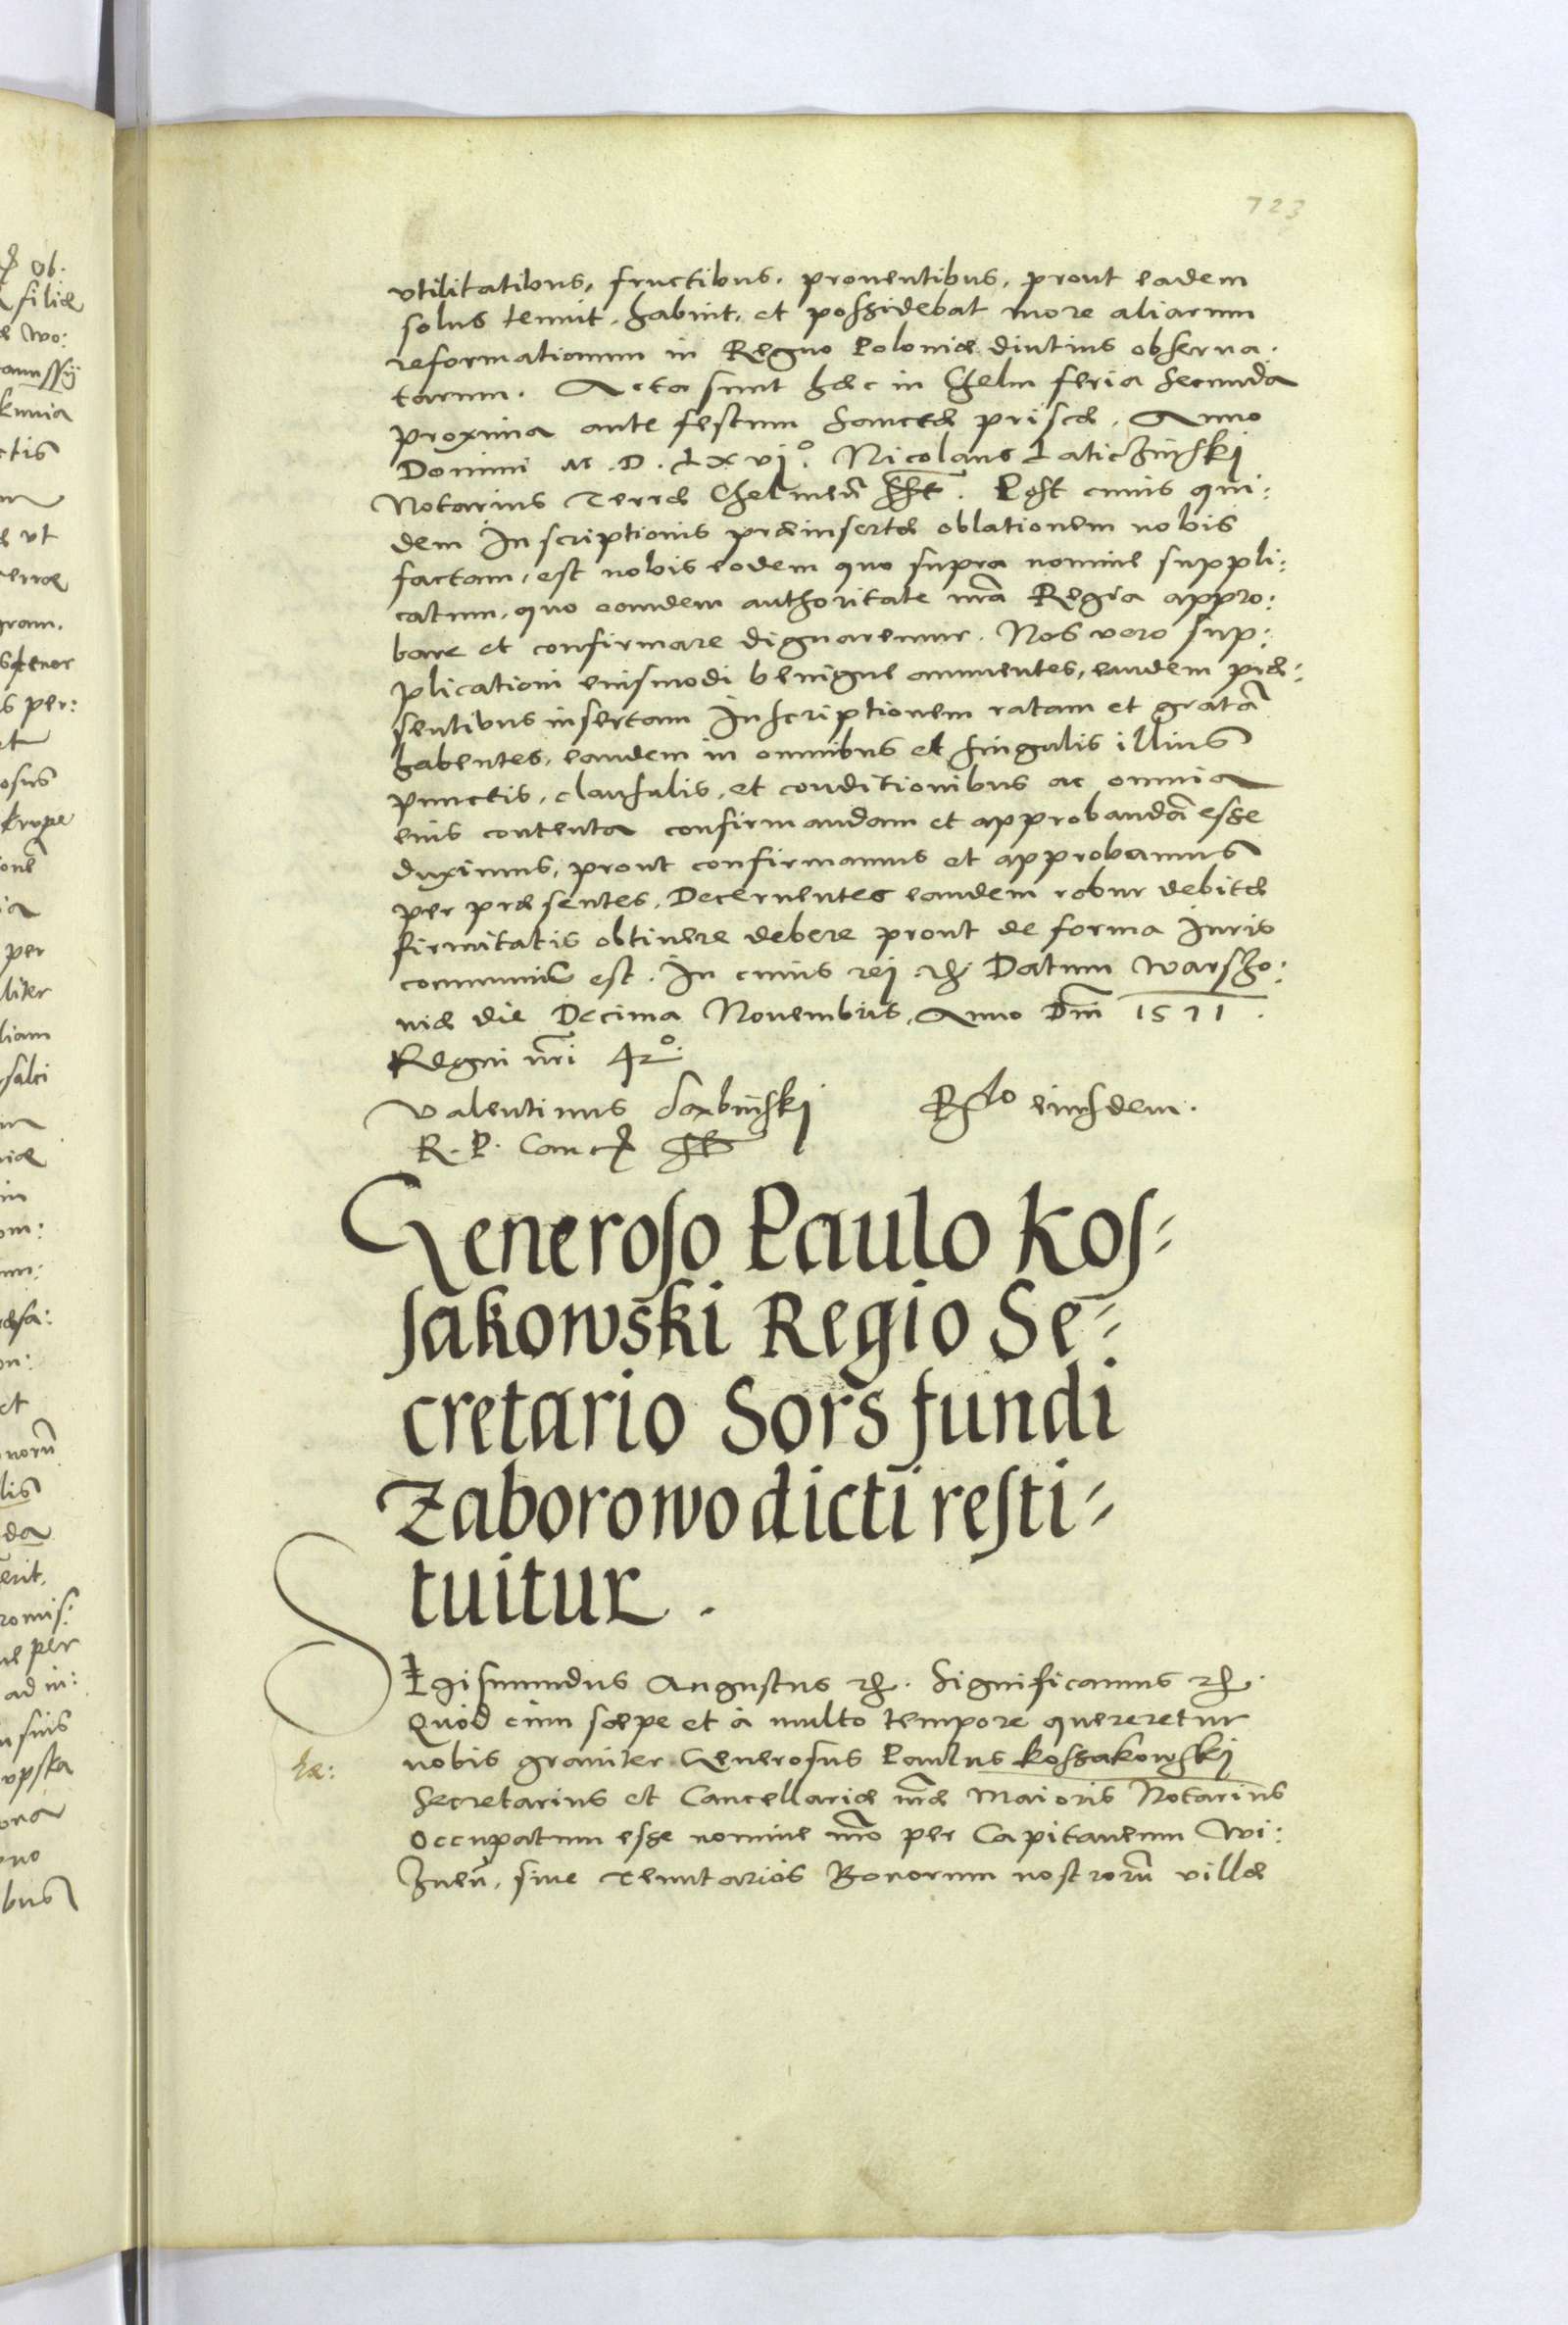 723
vtilitatibus, fructibus, prouentibus, prout eadem
solus tenuit, habuit, et possidebat more aliarum
reformationum in Regno Poloniæ diutius obserua.
tarum. Acta sunt hæc in Chelm feria Secunda
proxima ante festum Sanctæ priscæ. Anno
Domini M. D. LXVI°. Nicolaus Laticzinski
Notarius Terræ Chelmeñ. Post cuius qui:
dem Inscriptionis præinsertæ oblationem nobis
factam, est nobis eodem quo supra nomine suppli:
catum, quo eandem authoritate nrã Regia appro:
bare et confirmare dignaremur. Nos vero sup:
plicationi eiusmodi benigne annuentes, eandem præ:
sentibus insertam Inscriptionem ratam et gratã
habentes, eandem in omnibus et singulis illius
punctis, clausulis, et conditionibus ac omnia
eius contenta confirmandam et approbandã esse
duximus, prout confirmamus et approbamus
per præsentes. Decernentes eandem robur debitæ
firmitatis obtinere debere prout de forma Iuris
communis est. In cuius rej &c. Datum Warszo:
uiæ die Decima Nouembris, Anno Dñi 1571.
Regni nr̃i 42°.
Valentinus Dãbinski
R. P. Canc
Rlo eiusdem.
Generoso Paulo Kos=
sakowski Regio Se=
cretario Sors fundi
Zaborowo dicti resti=
tuitur.
SIgismundus Augustus &c. Significamus &c.
Quod cum sæpe et à multo tempore quereretur
nobis grauiter Generosus Paulus Kossakowskj
Secretarius et Cancellariæ nr̃æ Maioris Notarius
Occupatum esse nomine nr̃o per Capitaneum Wi:
zneñ, siue Tenutarios Bonorum nostrorũ villæ